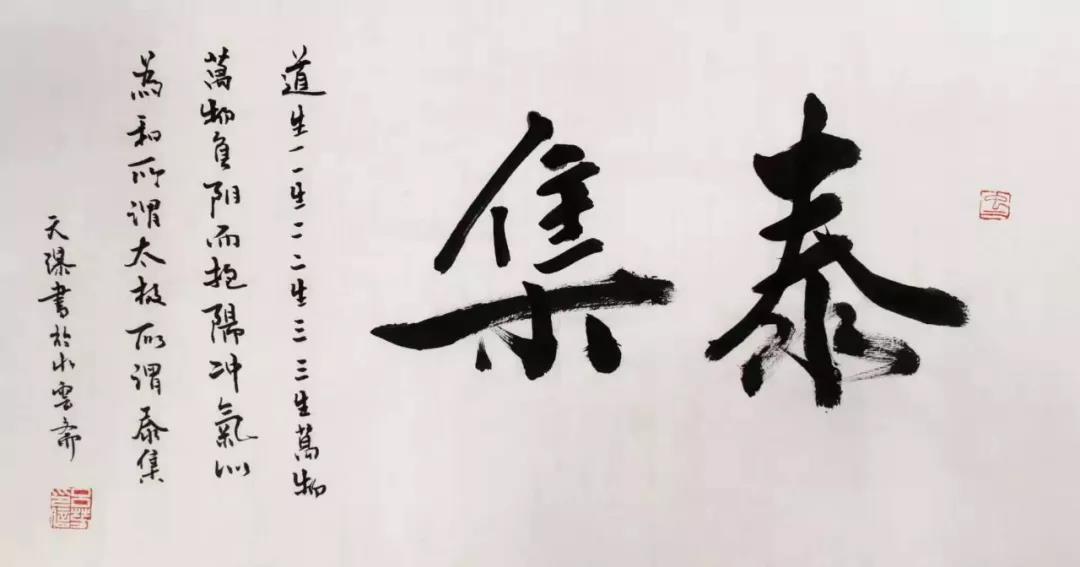 泰集
道生一一生二二生三三生萬物
萬物負阴而抱陽冲氣以
為和所謂太极所謂泰集
天書於水雲斋